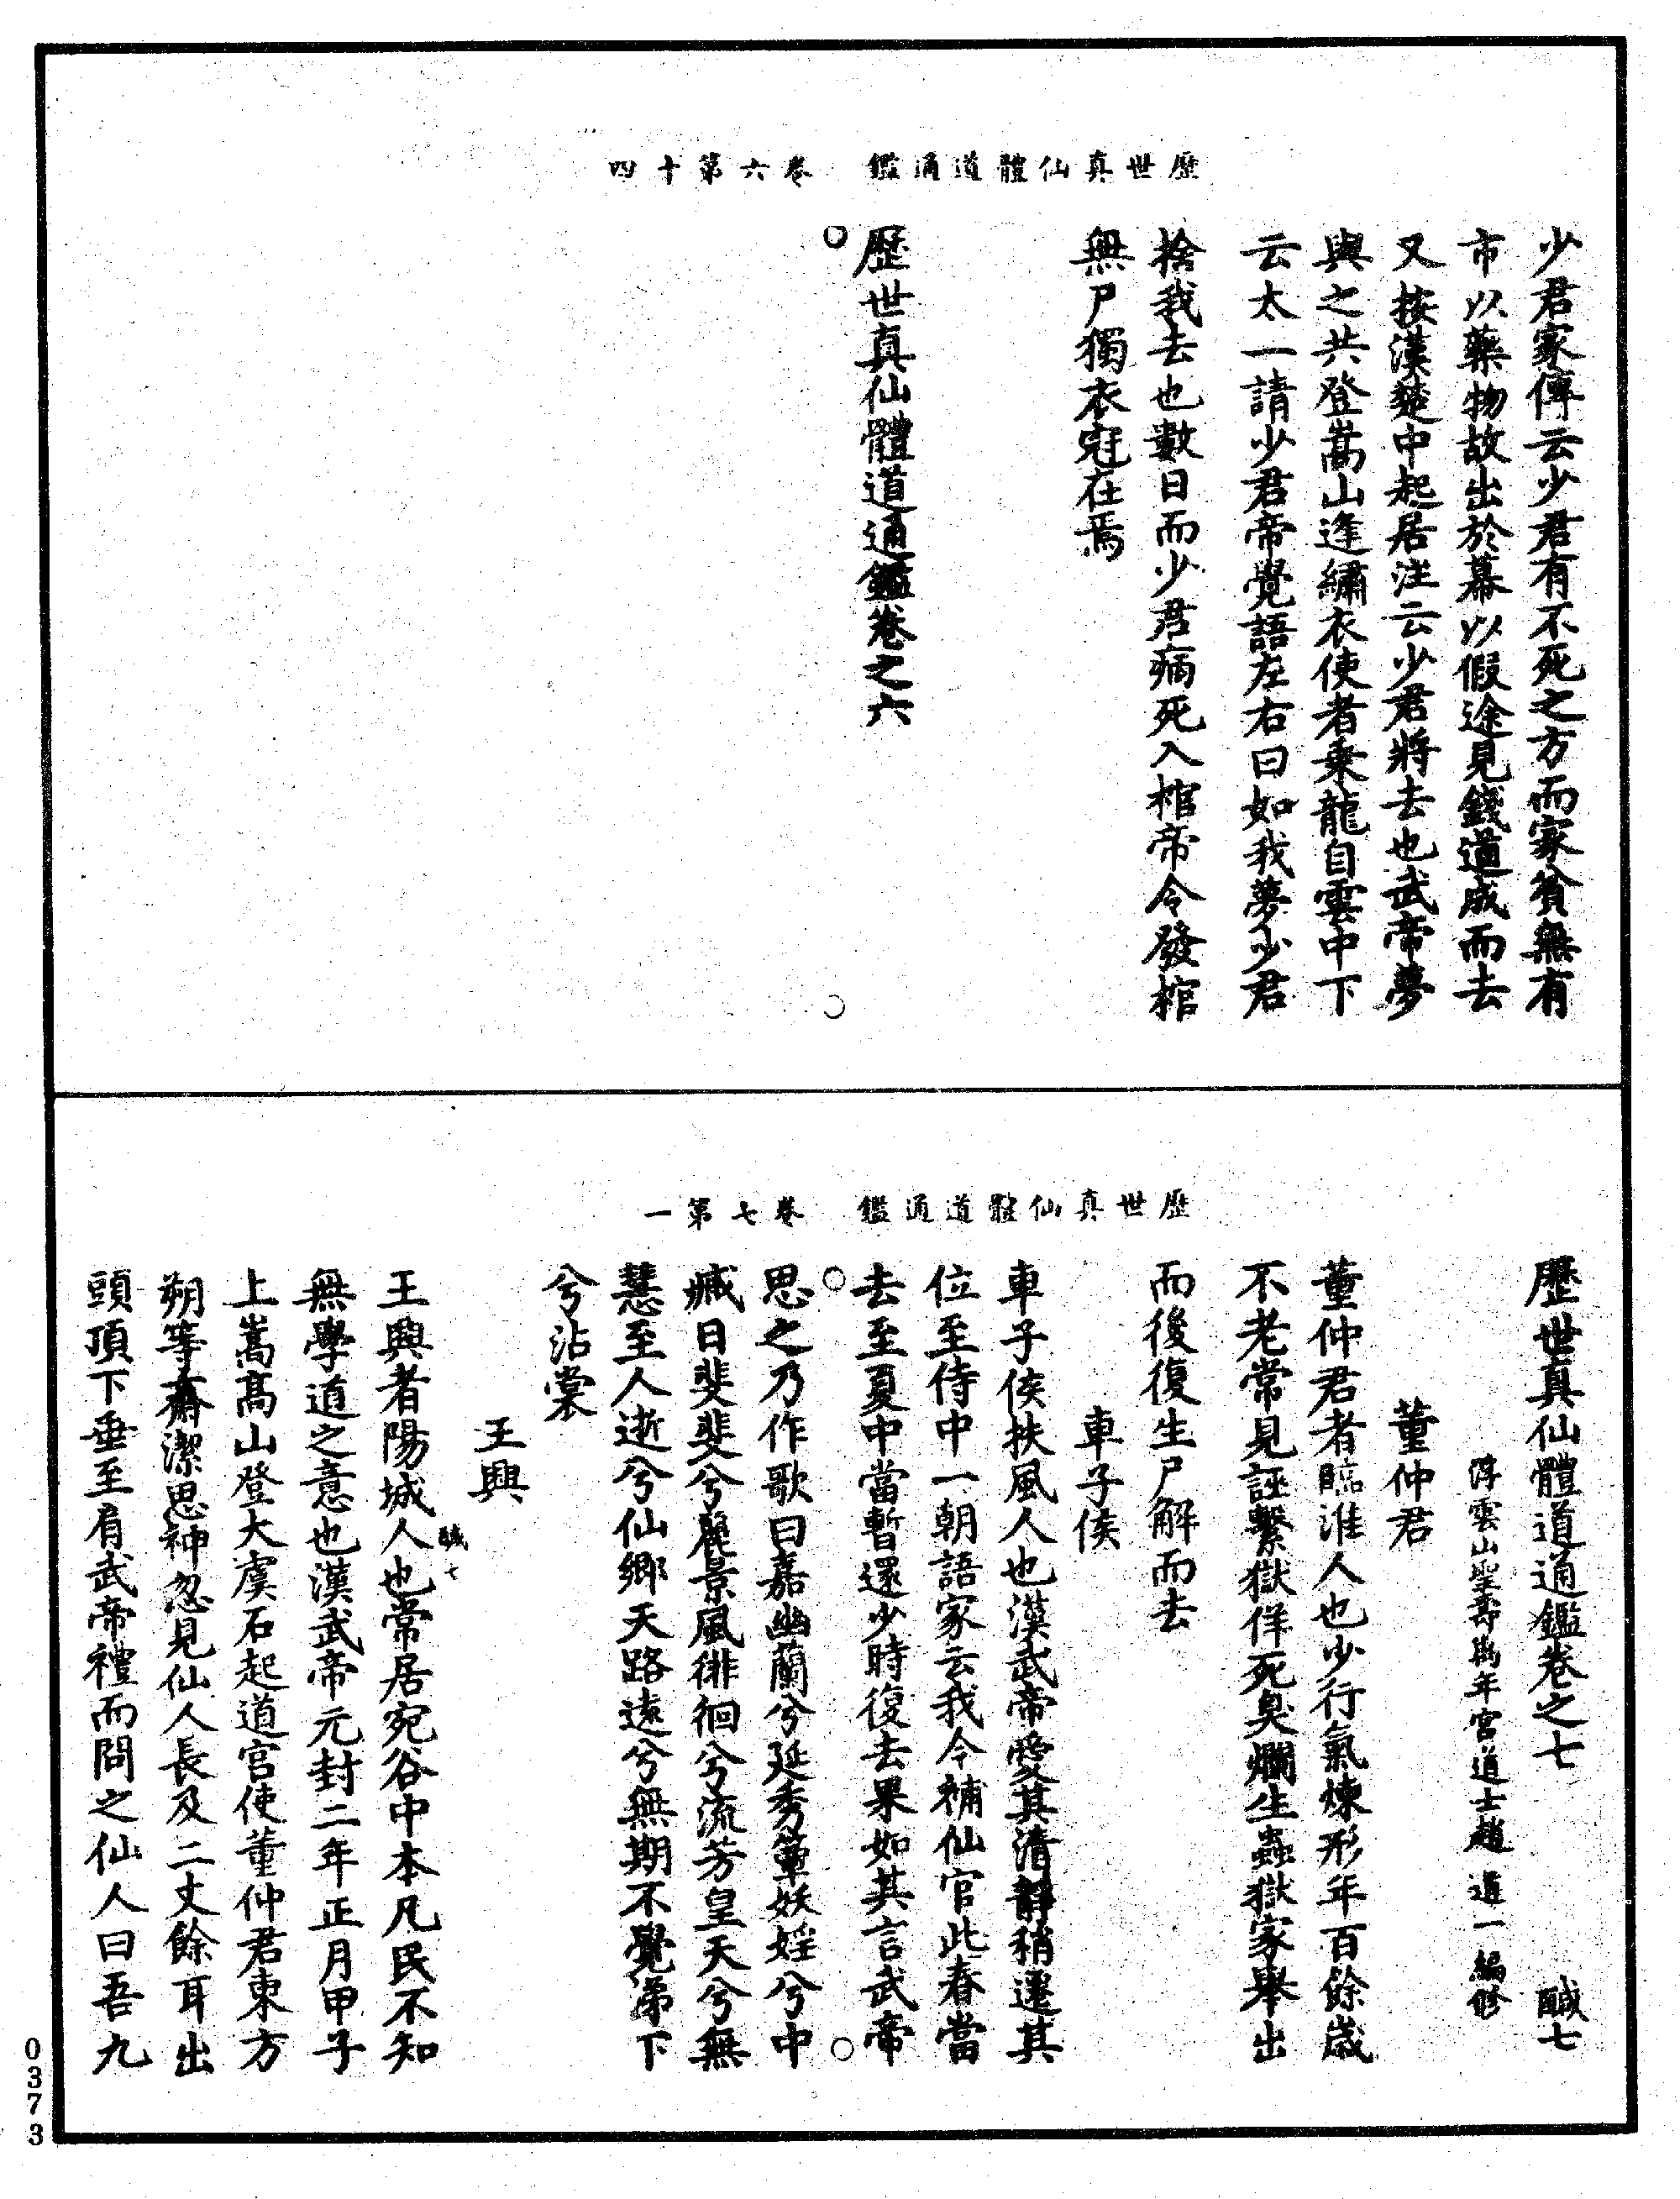 歷世真仙體道通鑑　卷六第十四
少君家傳云少君有不死之方而家貧無有
市以藥物故出於幕以假途見錢道成而去
又按漢楚中起居注云少君將去也武帝夢
與之共登嵩山逢繡衣使者乗龍自雲中下
云太一請少君帝覺語左右曰如我夢少君
捨我去也數日而少君病死入棺帝令發棺
無尸獨衣冠在焉
歷世真仙體道通鑑卷之六
歷世真仙體道通鑑　卷七第一
歷世真仙體道通鑑卷之七　　鹹七
浮雲山聖壽萬年宮道士趙道一編修
董仲君
董仲君者臨淮人也少行氣煉形年百餘歲
不老常見誣繫獄佯死臭爛生蟲獄家舉出
而後復生尸解而去
車子侯
車子侯扶風人也漢武帝愛其清靜稍遷其
位至侍中一朝語家云我今補仙官此春當
去至夏中當暫還少時復去果如其言武帝
思之乃作歌曰嘉幽蘭兮延秀蕈妖婬兮中
㵣日斐斐兮麗景風徘徊兮流芳皇天兮無
慧至人逝兮仙鄉天路遠兮無期不覺涕下
兮沾裳
王興
王興者陽城人也常居宛谷中本凡民不知
鹹七
無學道之意也漢武帝元封二年正月甲子
上嵩高山登大虞石起道宮使董仲君東方
朔等齋潔思神忽見仙人長及二丈餘耳出
頭頂下垂至肩武帝禮而問之仙人曰吾九
0373